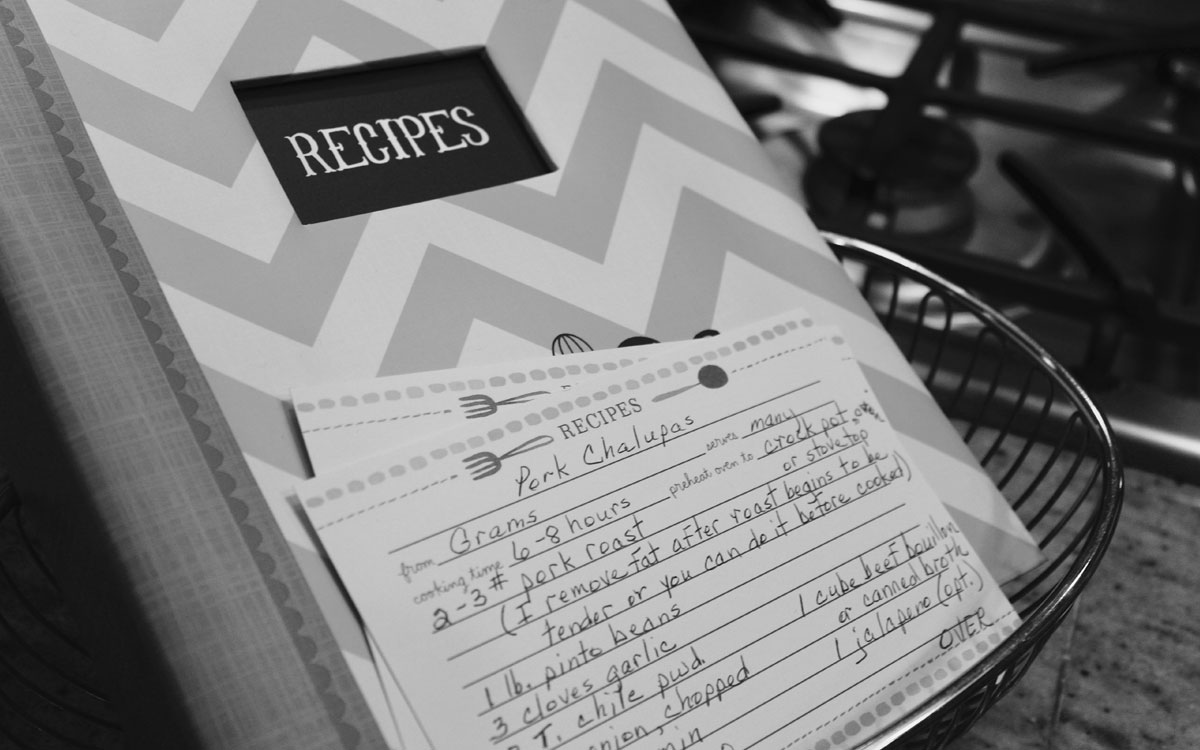 RECIPES
RECIPES
Pork Chalupas
from Grams serves many
cooking time 6-8 hours preheat oven to crock pot, oven
or stove top
2-3# pork roast
(I remove fat after roast begins to be
tender or you can do it before cooked)
1 lb. pinto beans 1 cube beef bouillon
3 cloves garlic or canned broth
T. chile pwd. 1 jalapeno (opt.)
chopped OVER